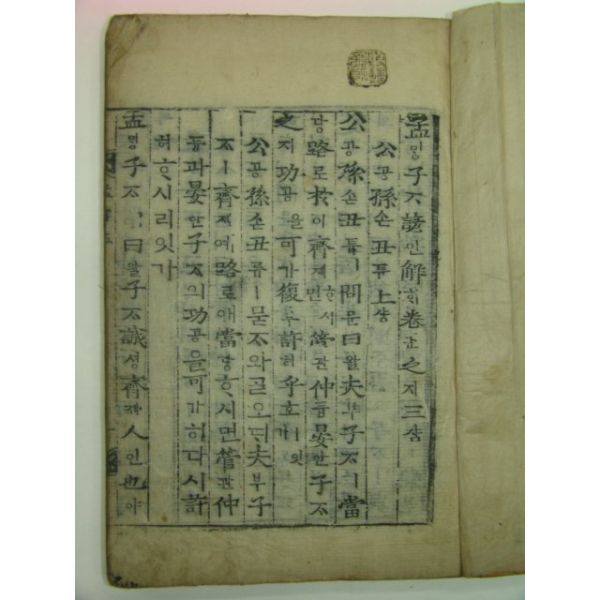 孟밍子ᄌᆞ諺언解ᄒᆡ卷권之지三삼
公공孫손丑튜上샹
公공孫손丑튜ㅣ問문曰왈夫부子ᄌᆞㅣ當
당路로於어齊졔ᄒᆞ시면管관仲듕晏안子ᄌᆞ
之지功공을可가復부許허乎호ㅣ잇가
公공孫손丑튜ㅣ묻ᄌᆞ와ᄀᆞᆯ오ᄃᆡ夫부子
ᄌᆞㅣ齊졔예路로애當당ᄒᆞ시면管관仲
듕과晏안子ᄌᆞ의功공을可가히다시許
허ᄒᆞ시리잇가
孟밍子ᄌᆞㅣ曰왈子ᄌᆞ誠셩齊졔人인也야